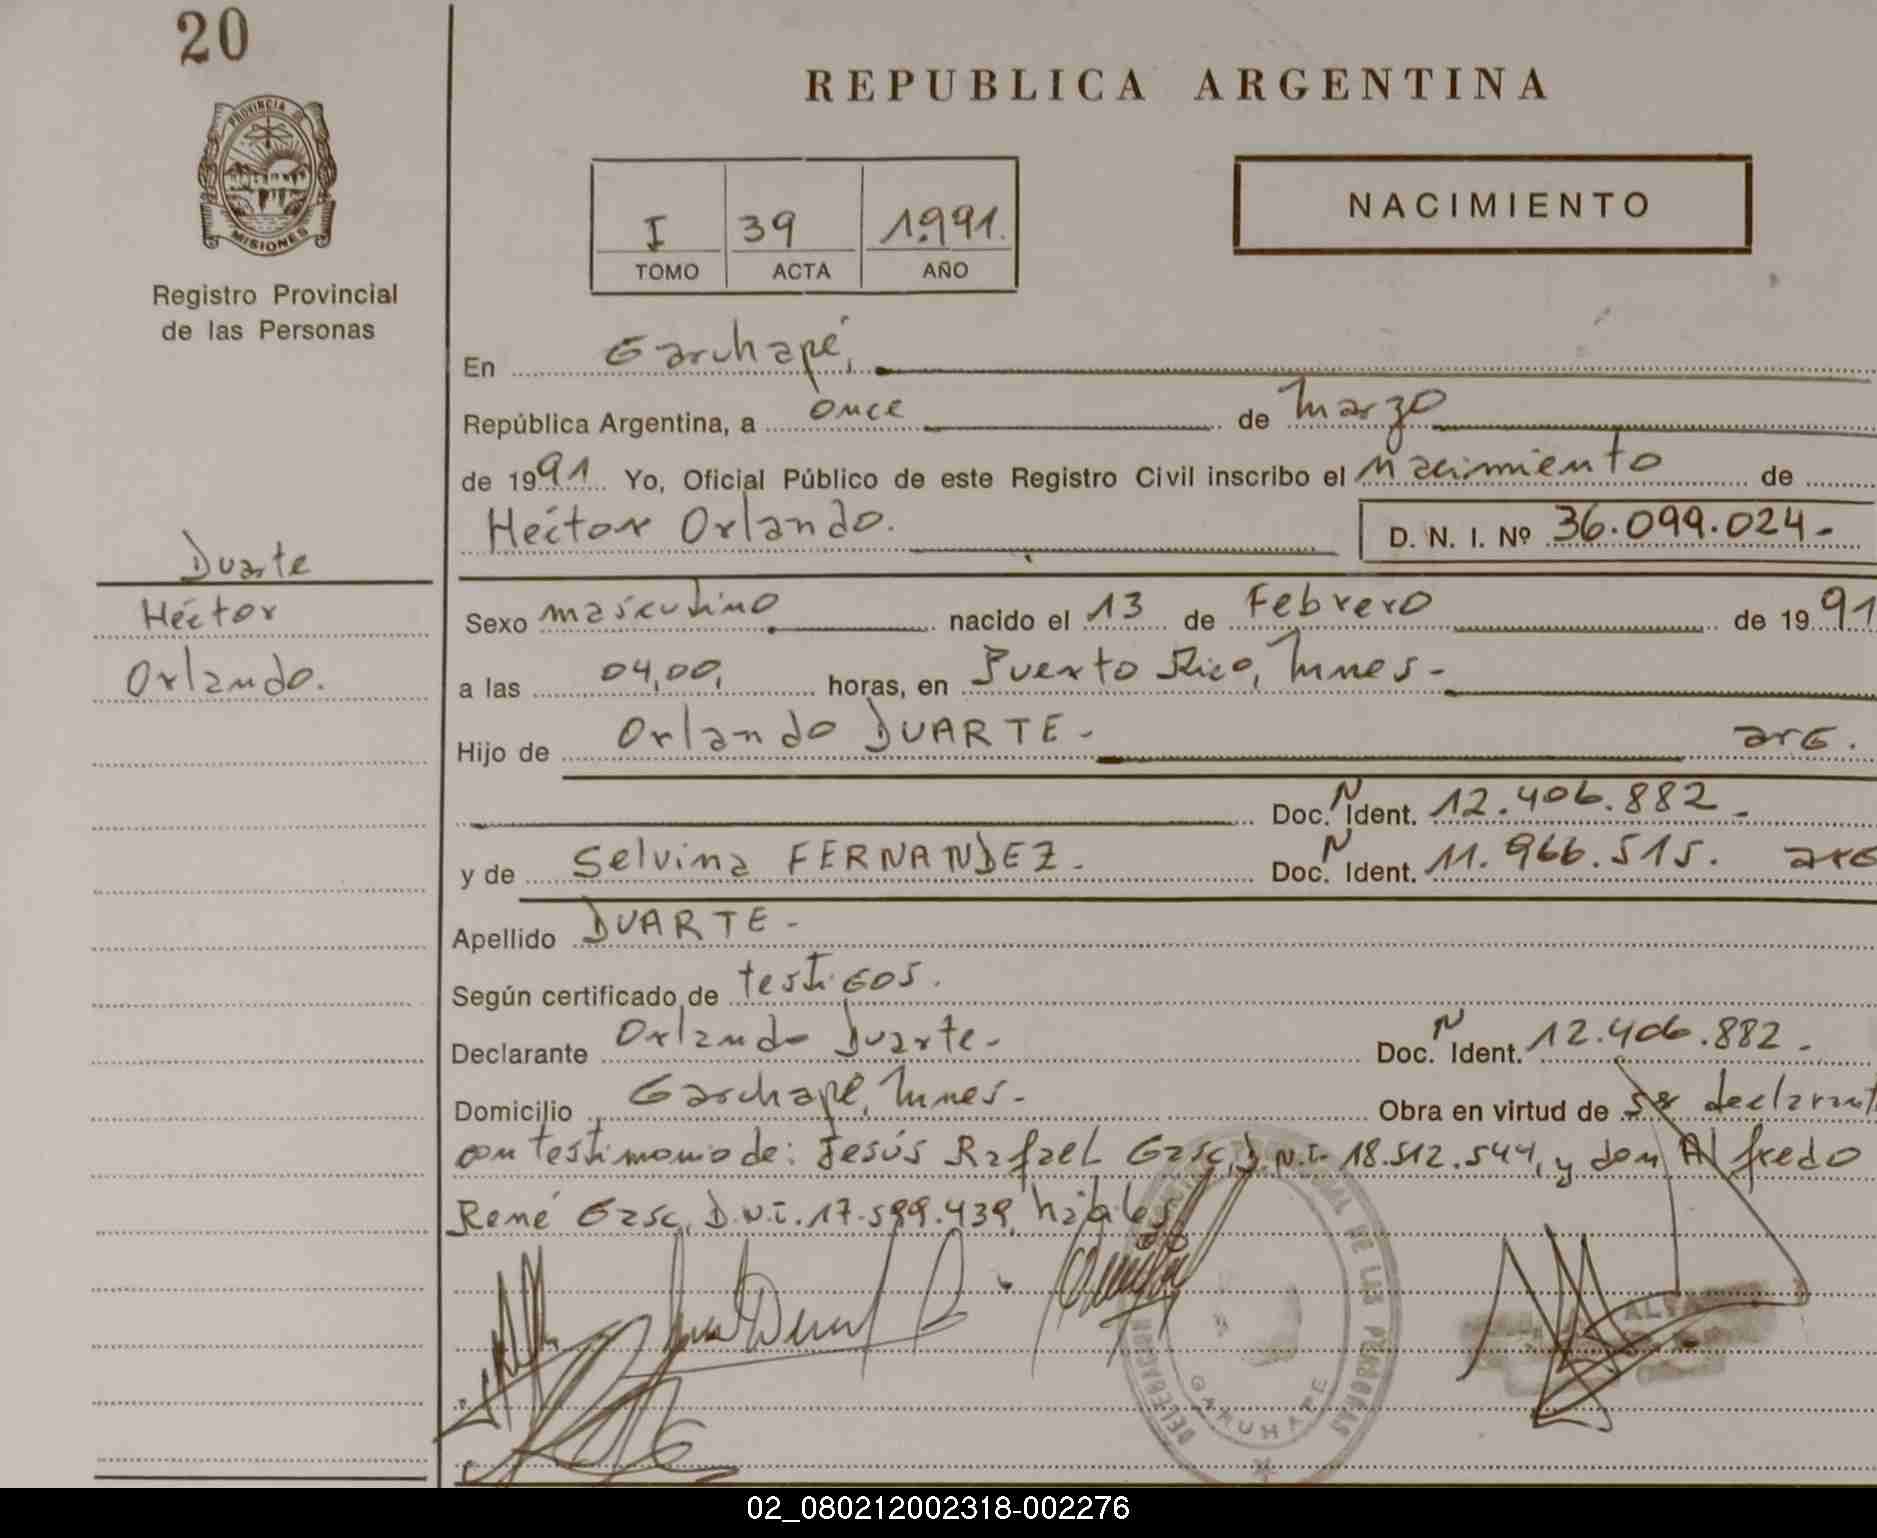 20
REPUBLICA ARGENTINA
PROVINCIA DE
MISIONES
Registro Provincial
de las Personas
I 39 1.991.
TOMO ACTA AÑO
NACIMIENTO
En Garuhapé,
República Argentina, a once de Marzo
de 1991. Yo, Oficial Público de este Registro Civil inscribo el Nacimiento de
Héctor Orlando. D. N. I. Nº 36.099.024-
Duarte
Héctor
Orlando.
Sexo masculino nacido el 13 de Febrero de 1991
a las 04,00, horas, en Puerto Rico, Mnes-
Hijo de Orlando DUARTE- arg.
Doc. N Ident. 12.406.882-
y de Selvina FERNANDEZ- Doc. N Ident. 11.966.515. arg
Apellido DUARTE-
Según certificado de testigos.
Declarante Orlando Duarte- Doc. N Ident. 12.406.882-
Domicilio Garuhapé, Mnes- Obra en virtud de ser declarant
con testimonio de: Jesús Rafael Gasc, D.N.I. 18.512.544, y don Alfredo
René Gasc, D.N.I. 17.599.439, hábiles
DELEGACION DE LAS PERSONAS
GARUHAPE
02_080212002318-002276